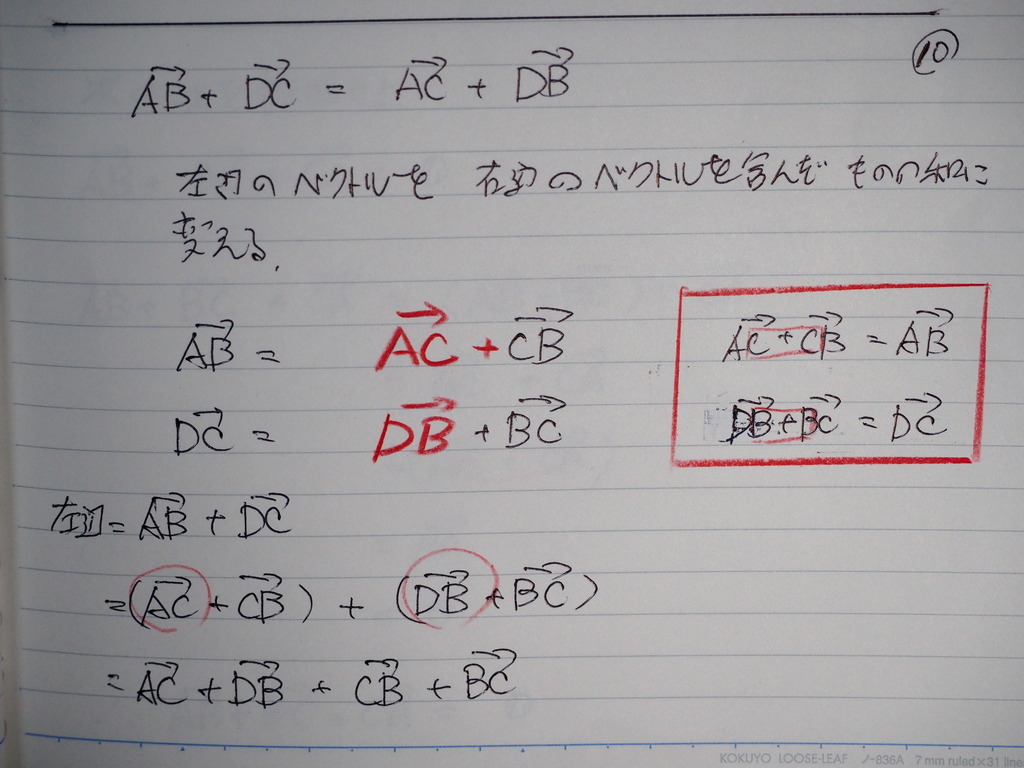 ⑩
AB→ + DC→ = AC→ + DB→
左辺のベクトルを 右辺のベクトルを含んだ ものの和に
変える.
AB→ = AC→ + CB→
DC→ = DB→ + BC→
AC→ + CB→ = AB→
DB→ + BC→ = DC→
左辺 = AB→ + DC→
= (AC→ + CB→) + (DB→ + BC→)
= AC→ + DB→ + CB→ + BC→
KOKUYO LOOSE-LEAF ノ-836A 7 mm ruled×31 line